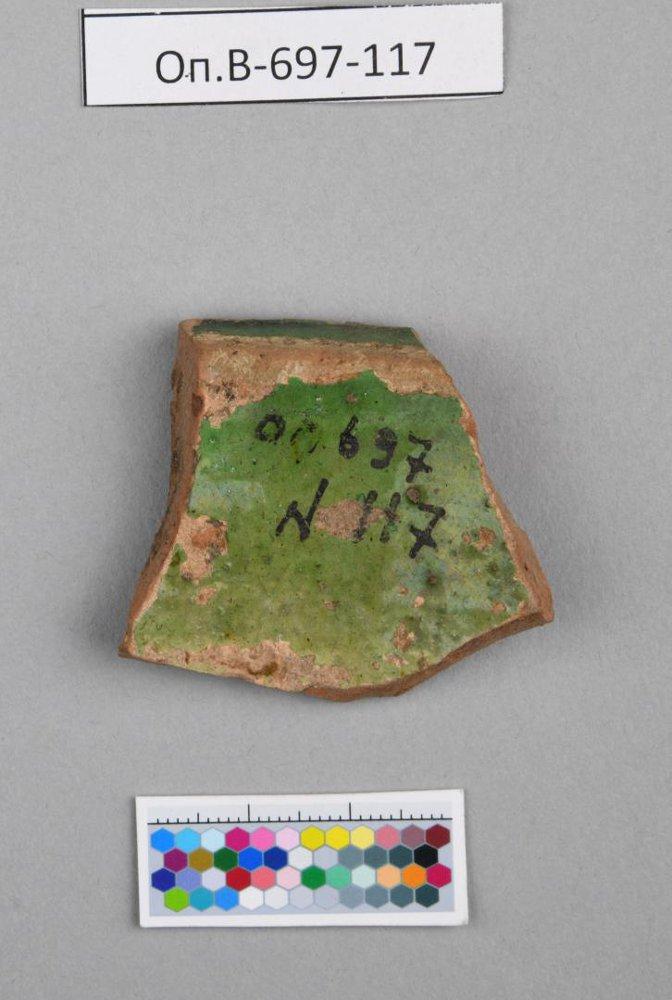 Оп.В-697-117
Оп 697
N 117